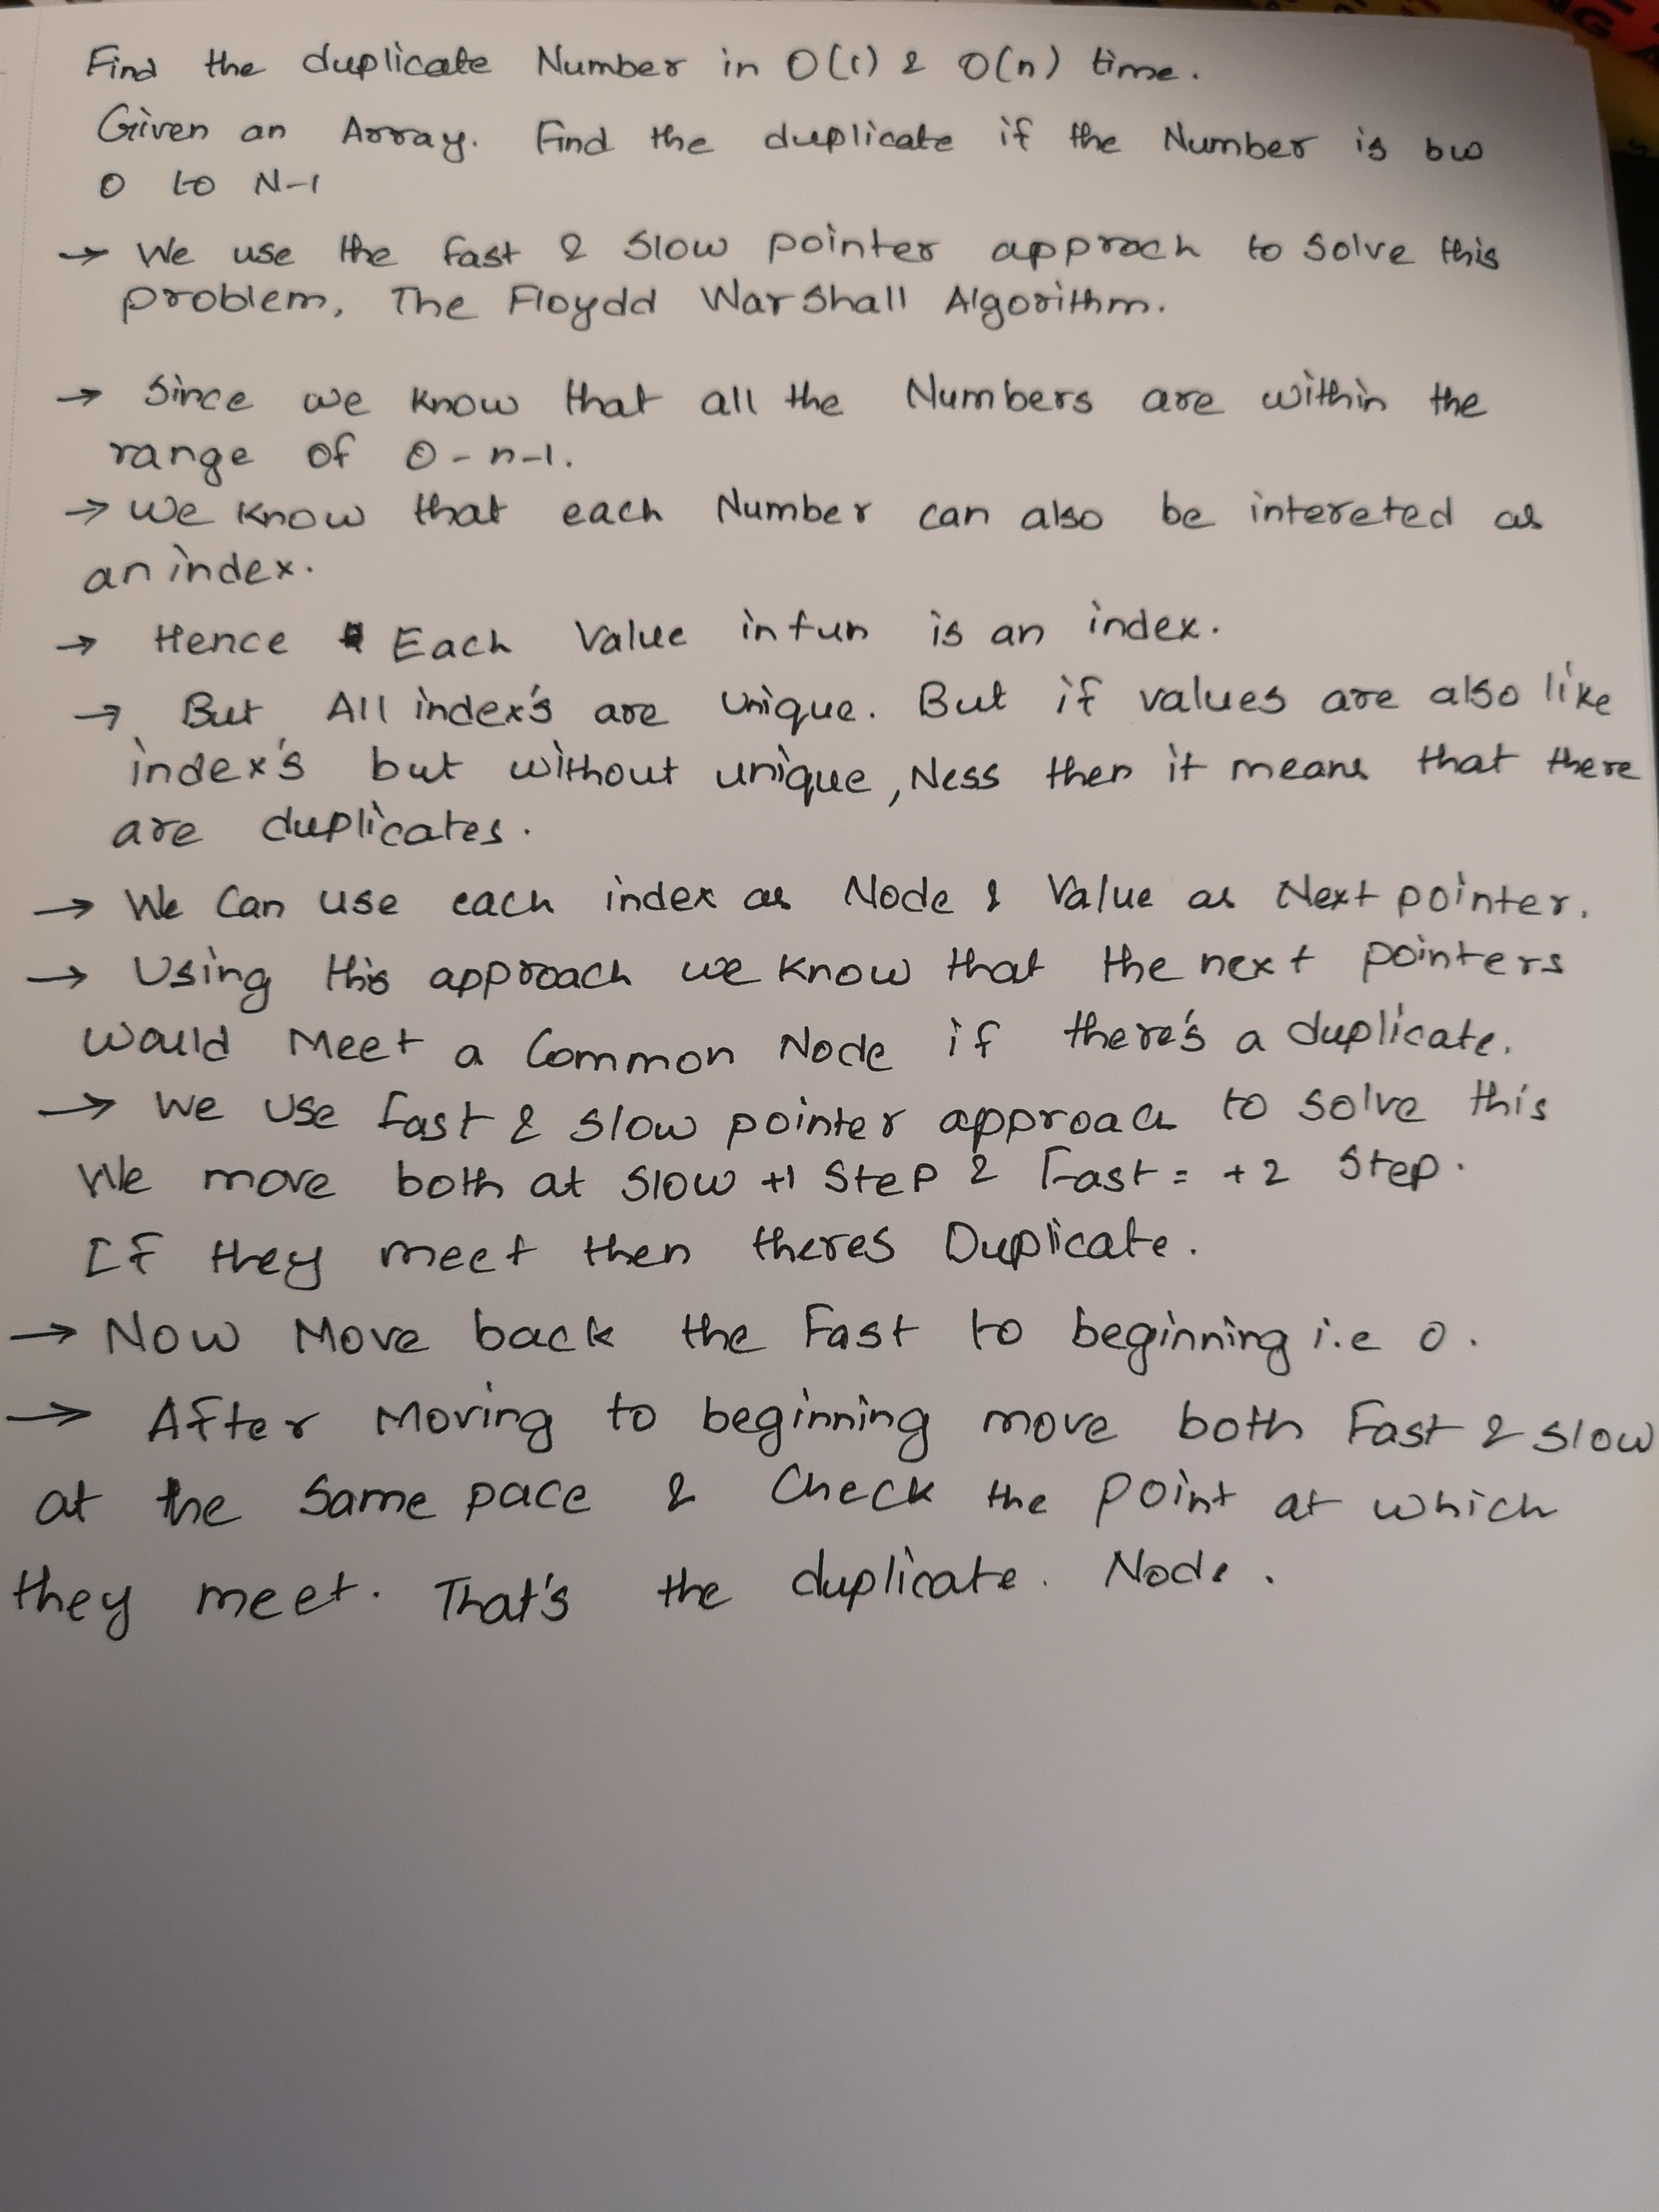 Find the duplicate Number in O(1) & O(n) time.
Given an Array. Find the duplicate if the Number is bw
0 to N-1
→ We use the fast & slow pointer approch to solve this
problem, The Floydd Warshall Algorithm.
→ Since we know that all the Numbers are within the
range of 0-n-1.
→ We know that each Number can also be intereted as
an index.
→ Hence Each Value in fun is an index.
→ But All index's are unique. But if values are also like
index's but without unique, Ness then it means that there
are duplicates.
→ We Can use each index as Node & Value as Next pointer.
→ Using this approach we know that the next pointers
would Meet a Common Node if there's a duplicate.
→ We use fast & slow pointer approach to solve this
We move both at slow +1 Step & Fast = +2 Step.
If they meet then theres Duplicate.
→ Now Move back the Fast to beginning i.e 0.
→ After Moving to beginning move both Fast & slow
at the same pace & Check the point at which
they meet. That's the duplicate. Node.